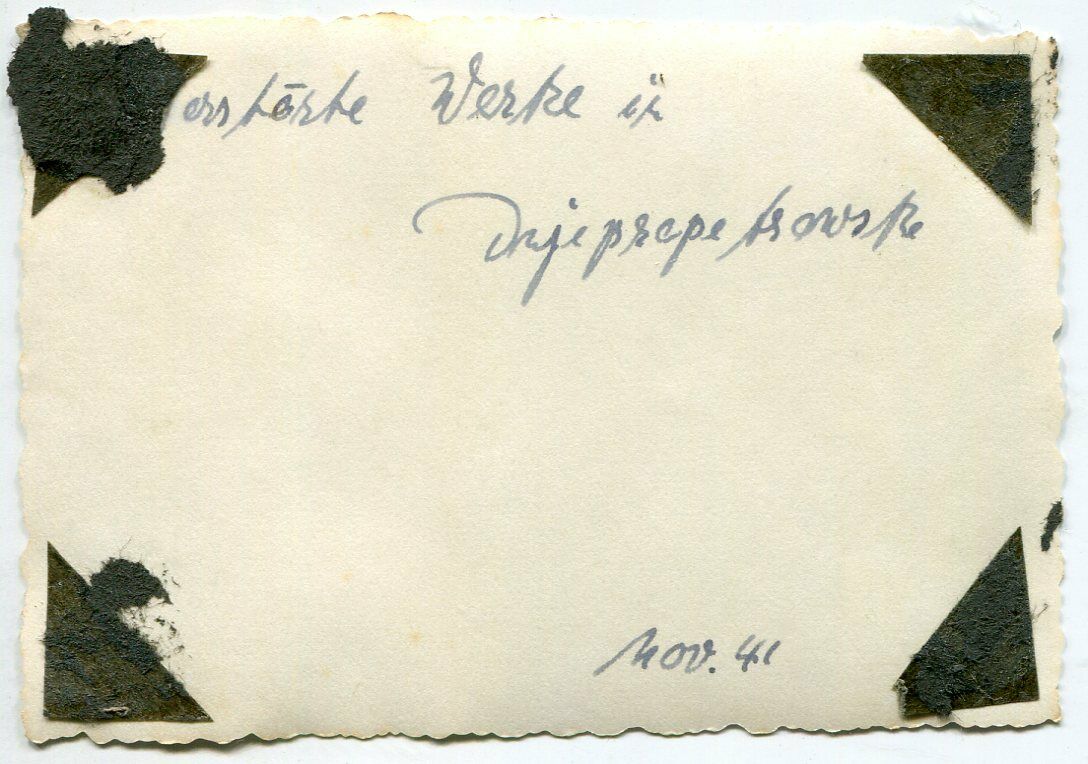 erstörte Werke in
Dnjepropetrowsk
Nov. 41